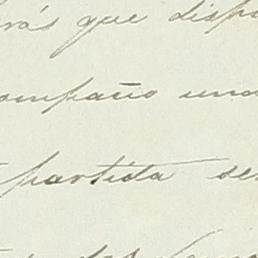 rás que dispo
ompaño una
partida se